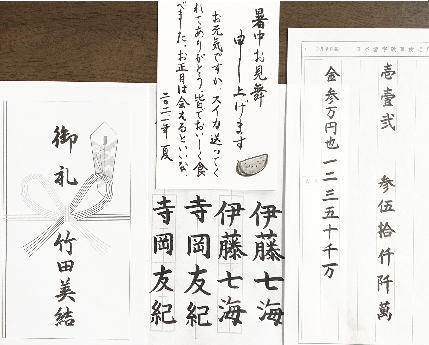 壱壹弐 参伍拾仟阡萬
金参万円也 一二三五十千万
暑中お見舞
申し上げます
お元気ですか。スイカ送ってく
れてありがとう。皆でおいしく食
べました。お正月は会えるといいな
二〇二一年 夏
伊藤七海
伊藤七海
寺岡友紀
寺岡友紀
御礼
竹田美結